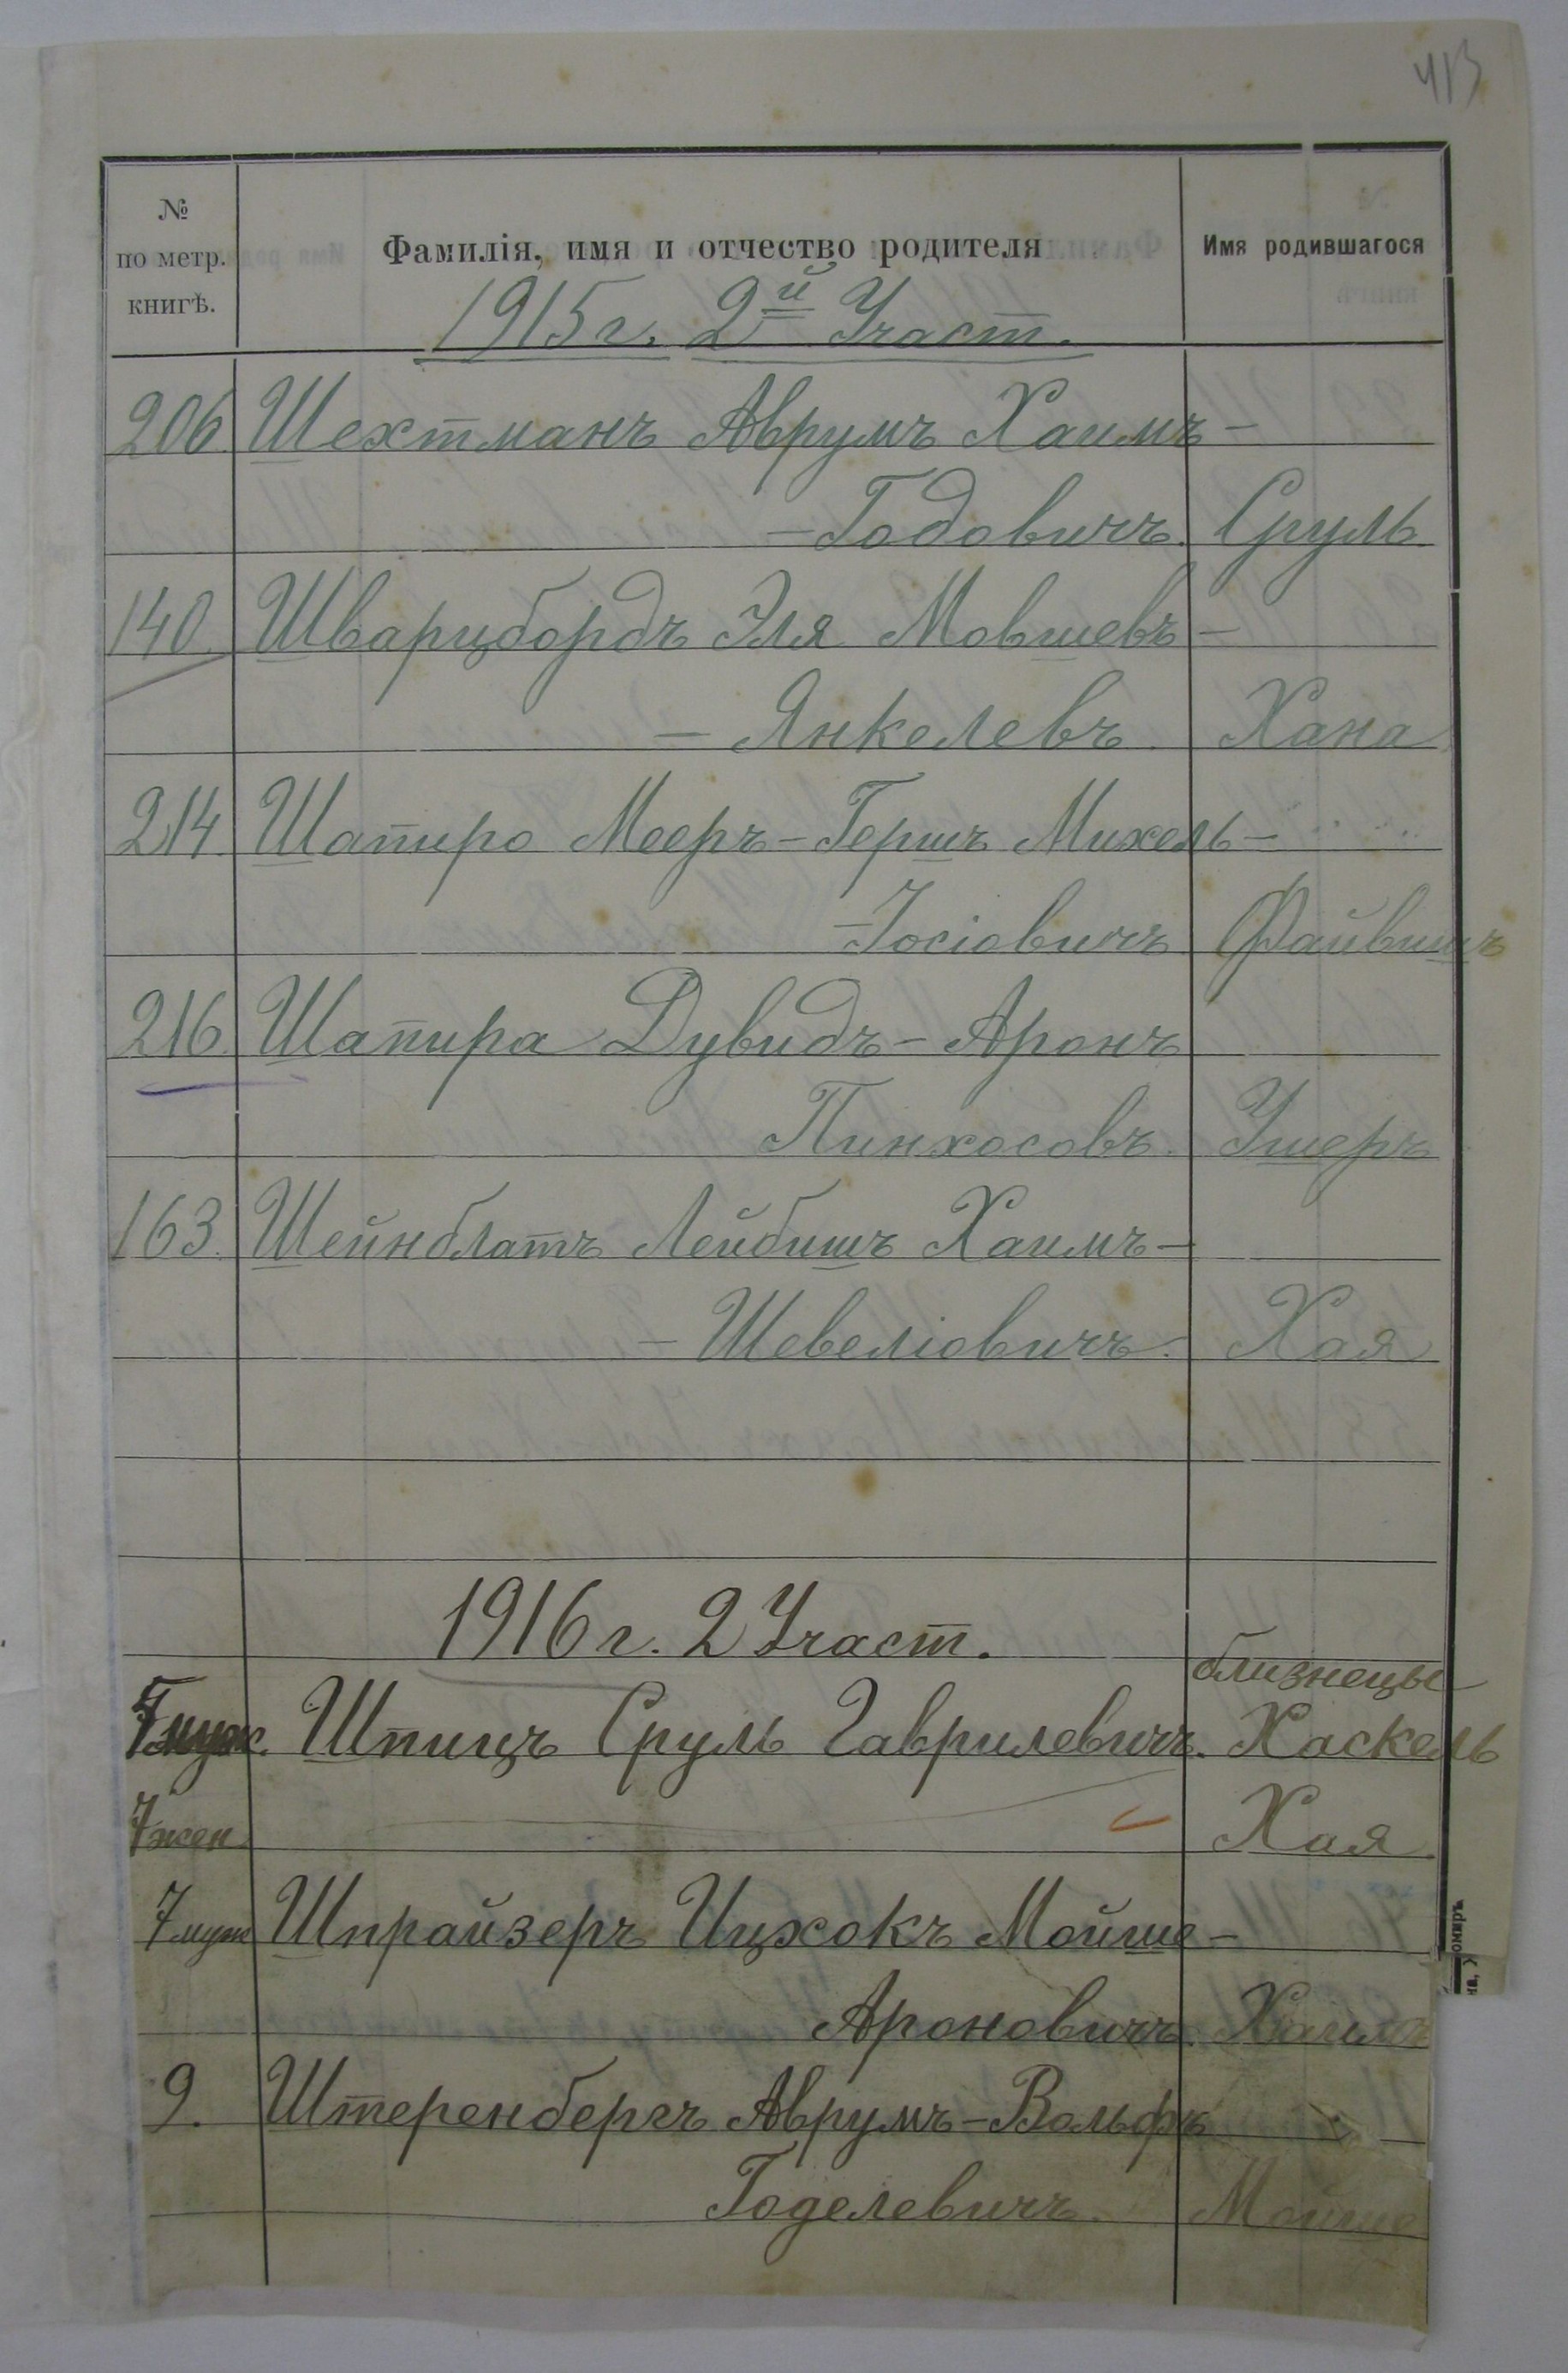 413
№
по метр.
книгѣ.
Фамилія, имя и отчество родителя
Имя родившагося
1915 г. 2й Участ.
206. Шехтманъ Аврумъ Хаимъ-
-Годовичъ. Сруль
140. Шварцбордъ Эля Мовшевъ-
- Янкелевъ. Хана
214. Шапиро Мееръ-Гершъ Михель-
-Іосіовичъ Файвишъ
216. Шапира Дувидъ-Аронъ
Пинхосовъ. Ушеръ
163. Шейнблатъ Лейбишъ Хаимъ-
- Шевеліовичъ. Хая
1916 г. 2 Участ.
близнецы
7 муж. Шпицъ Сруль Гаврилевичъ. Хаскель
7 жен Хая.
7 муж Шпрайзеръ Ицхокъ Мойше-
Ароновичъ. Хаимъ
9. Штеренбергъ Аврумъ-Вольфъ
Годелевичъ. Мойше